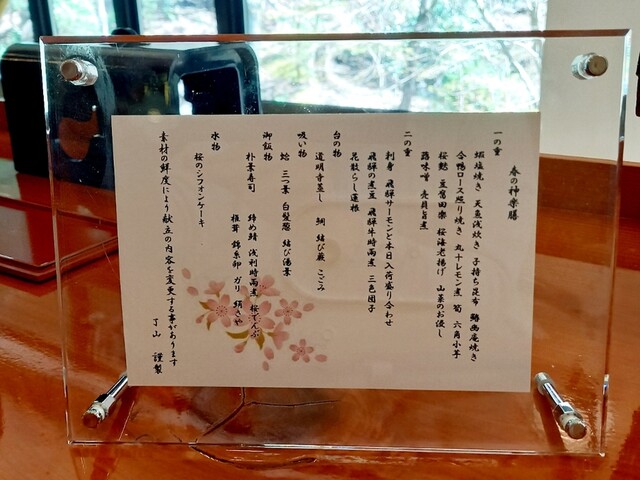 春の神楽膳
一の重
蝦塩焼き 天魚浅炊き 子持ち昆布 鰆幽庵焼き
合鴨ロース照り焼き 丸十レモン煮 筍 六角小芋
桜麩 豆腐田楽 桜海老揚げ 山菜のお浸し
蕗味噌 売貝旨煮
二の重
刺身 飛騨サーモンと本日入荷盛り合わせ
飛騨の煮豆 飛騨牛時雨煮 三色団子
花散らし蓮根
台の物
道明寺蒸し 鯛 結び蕨 こごみ
吸い物
蛤 三つ葉 白髪葱 結び湯葉
御飯物
朴葉寿司 締め鯖 浅利時雨煮 桜でんぶ
椎茸 錦糸卵 ガリ 絹さや
水物
桜のシフォンケーキ
素材の鮮度により献立の内容を変更する事があります
丁山 謹製